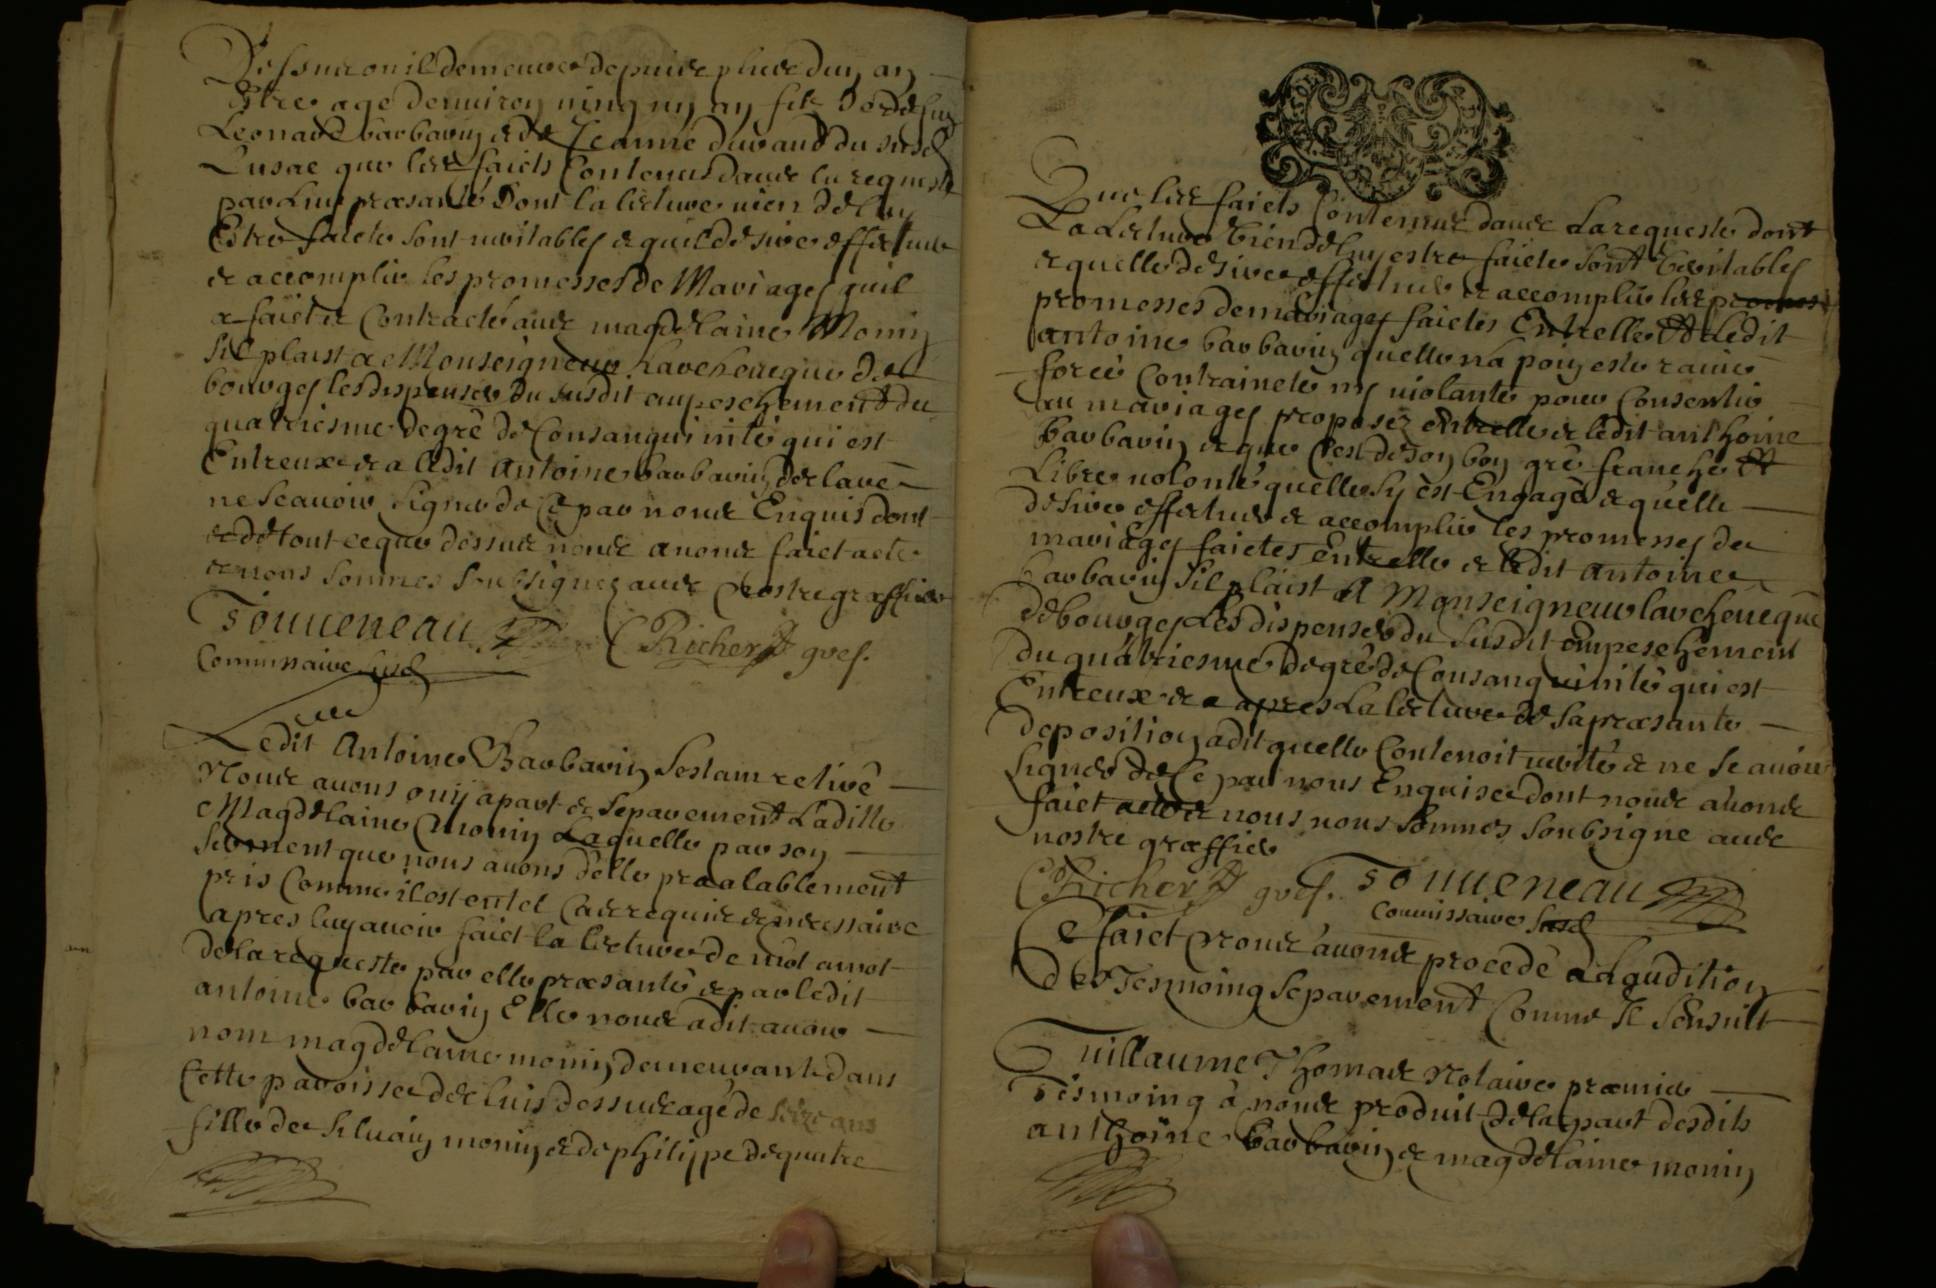 Dessus ou il demeure depuis plus dun an
Estre age denviron vingt un an fils de deffunt
Leonard barbarin et de Jeanne duraud du susd
Lusac que les faicts contenus dans la requeste
par luy præsanté dont la lecture vient de luy
Estre faicte sont veritables et quil desire effectuer
et accomplir les promesses de Mariages quil
a faict et contracté avec magdelaine Monin
sil plaist a Monseigneur larchevesque de
bourges les dispenser du susdit anpeschement du
quatriesme degré de consanguinité qui est
Entreux et a ledit antoine barbarin declaré
ne scavoir signer de ce par nous Enquis dont
et de tout ce que dessus nous avons faict acte
et nous sommes soubsignez avec nostre græffier
Touueneau C Richer gref.
Commissaire susd
Ledit Antoine Barbarin sestant retiré
Nous avons ouÿ apart et separement Ladille
Magdelaine Monin Laquelle par son
serment que nous avons delle præalablement
pris comme il est en tel cas requis et necessaire
apres luy avoir faict la lecture de mot amot
de la requeste par elle præsanté et par ledit
antoine barbarin Elle nous a dit avoir
nom magdelaine monin demeurante dans
cette paroisse de luis dessus agé de seize ans
fille de silvain monin et de philippe dequatre
Que les faicts contenus dans la requeste dont
La Lecture vien de luy estre faicte sont veritables
et quelle desire effectuer et accomplir les promess
promesses de mariages faictes Entrelle et ledit
antoine barbarin quelle na poin este ravie
forcé contraincte ny violanté pour consentir
au mariages proposez entrelle et ledit anthoine
barbarin et que cest de son bon gré franche et
Libre volonté quelle sy est Engagé et quelle
desire effectuer et accomplir les promesses de
mariages faictes entrelle et ledit antoine
barbarin sil plaist A Monseigneur larchevequé
de bourges Les dispenser du susdit empeschement
du quatriesme degré de consanguinité qui est
Entreux et apres La lecture de sa præsante
deposition a dit quelle contenoit verité et ne scavoir
signer de ce par nous Enquise dont nous avons
faict acte et nous nous sommes soubsigne avec
nostre græffier
C Richer gref. Touueneau
Commissaire susd
Ce faict Nous avons procedé a laudition
des Tesmoing separement comme il sensuit
Guillaume Thomas Notaire præmier
Tesmoing à nous produit de la part desdits
anthoine barbarin et magdelaine monin